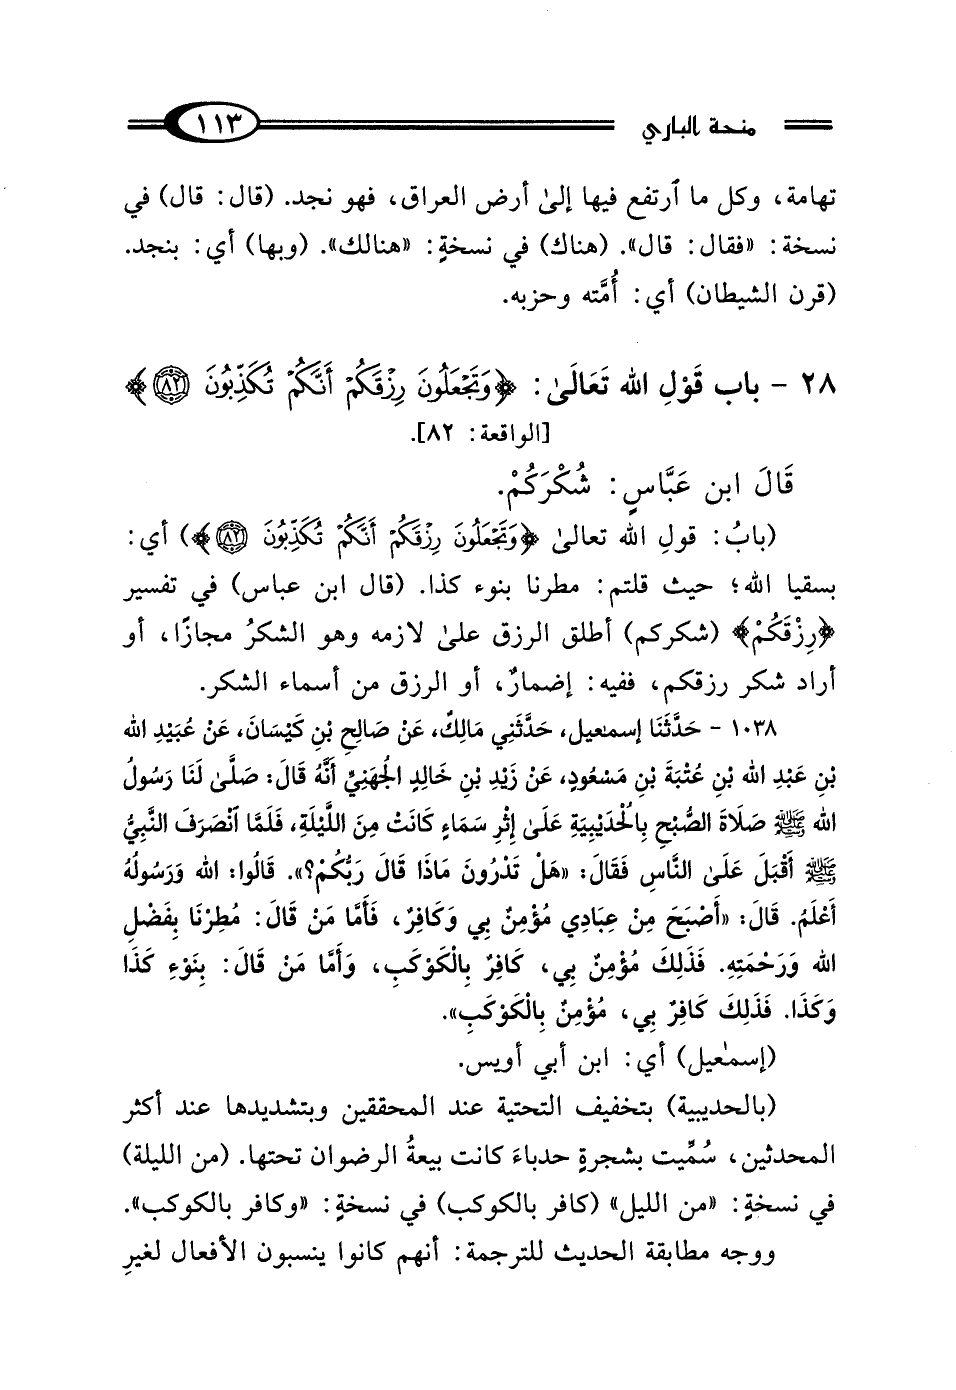 منحة الباري ١١٣
تهامة، وكل ما ٱرتفع فيها إلىٰ أرض العراق، فهو نجد. (قال: قال) في
نسخة: «فقال: قال». (هناك) في نسخةٍ: «هنالك». (وبها) أي: بنجد.
(قرن الشيطان) أي: أُمَّته وحزبه.
٢٨ - باب قَوْلِ الله تَعَالَىٰ: ﴿وَتَجْعَلُونَ رِزْقَكُمْ أَنَّكُمْ تُكَذِّبُونَ ٨٢﴾
[الواقعة: ٨٢].
قَالَ ابن عَبَّاسٍ: شُكْرَكُمْ.
(بابُ: قولِ الله تعالىٰ ﴿وَتَجْعَلُونَ رِزْقَكُمْ أَنَّكُمْ تُكَذِّبُونَ ٨٢﴾) أي:
بسقيا الله؛ حيث قلتم: مطرنا بنوء كذا. (قال ابن عباس) في تفسير
﴿رِزْقَكُمْ﴾ (شكركم) أطلق الرزق علىٰ لازمه وهو الشكرُ مجازًا، أو
أراد شكر رزقكم، ففيه: إضمارٌ، أو الرزق من أسماء الشكر.
١٠٣٨ - حَدَّثَنَا إسمٰعيل، حَدَّثَنِي مَالِكٌ، عَنْ صَالِحِ بْنِ كَيْسَانَ، عَنْ عُبَيْدِ الله
بْنِ عَبْدِ الله بْنِ عُتْبَةَ بْنِ مَسْعُودٍ، عَنْ زَيْدِ بْنِ خَالِدٍ الجُهَنِيِّ أَنَّهُ قَالَ: صَلَّىٰ لَنَا رَسُولُ
الله ﷺ صَلَاةَ الصُّبْحِ بِالْحُدَيْبِيَةِ عَلَىٰ إِثْرِ سَمَاءٍ كَانَتْ مِنَ اللَّيْلَةِ، فَلَمَّا ٱنْصَرَفَ النَّبِيُّ
ﷺ أَقْبَلَ عَلَىٰ النَّاسِ فَقَالَ: «هَلْ تَدْرُونَ مَاذَا قَالَ رَبُّكُمْ؟». قَالُوا: الله وَرَسُولُهُ
أَعْلَمُ. قَالَ: «أَصْبَحَ مِنْ عِبَادِي مُؤْمِنٌ بِي وَكَافِرٌ، فَأَمَّا مَنْ قَالَ: مُطِرْنَا بِفَضْلِ
الله وَرَحْمَتِهِ. فَذَلِكَ مُؤْمِنٌ بِي، كَافِرٌ بِالْكَوْكَبِ، وَأَمَّا مَنْ قَالَ: بِنَوْءِ كَذَا
وَكَذَا. فَذَلِكَ كَافِرٌ بِي، مُؤْمِنٌ بِالْكَوْكَبِ».
(إسمٰعيل) أي: ابن أبي أويس.
(بالحديبية) بتخفيف التحتية عند المحققين وبتشديدها عند أكثر
المحدثين، سُمِّيت بشجرةٍ حدباءَ كانت بيعةُ الرضوان تحتها. (من الليلة)
في نسخةٍ: «من الليل» (كافر بالكوكب) في نسخةٍ: «وكافر بالكوكب».
ووجه مطابقة الحديث للترجمة: أنهم كانوا ينسبون الأفعال لغيرِ